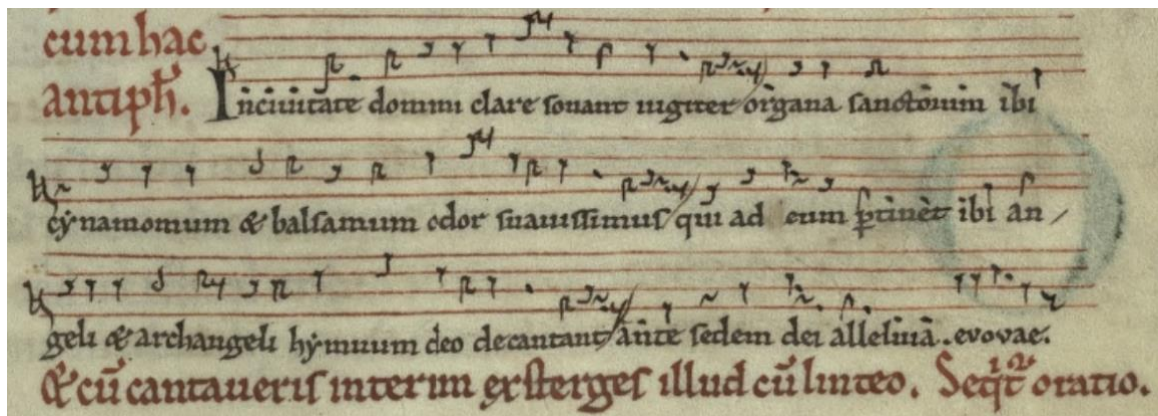 cum hac
antiph. In ciuitate domini clare sonant iugiter organa sanctorum ibi
cynamomum & balsamum odor suauissimus qui ad eum ptinet ibi an
geli & archangeli hymnum deo decantant ante sedem dei alleluia. evovae.
& cu cantaueris interim exsterges illud cu linteo. Seqt oratio.